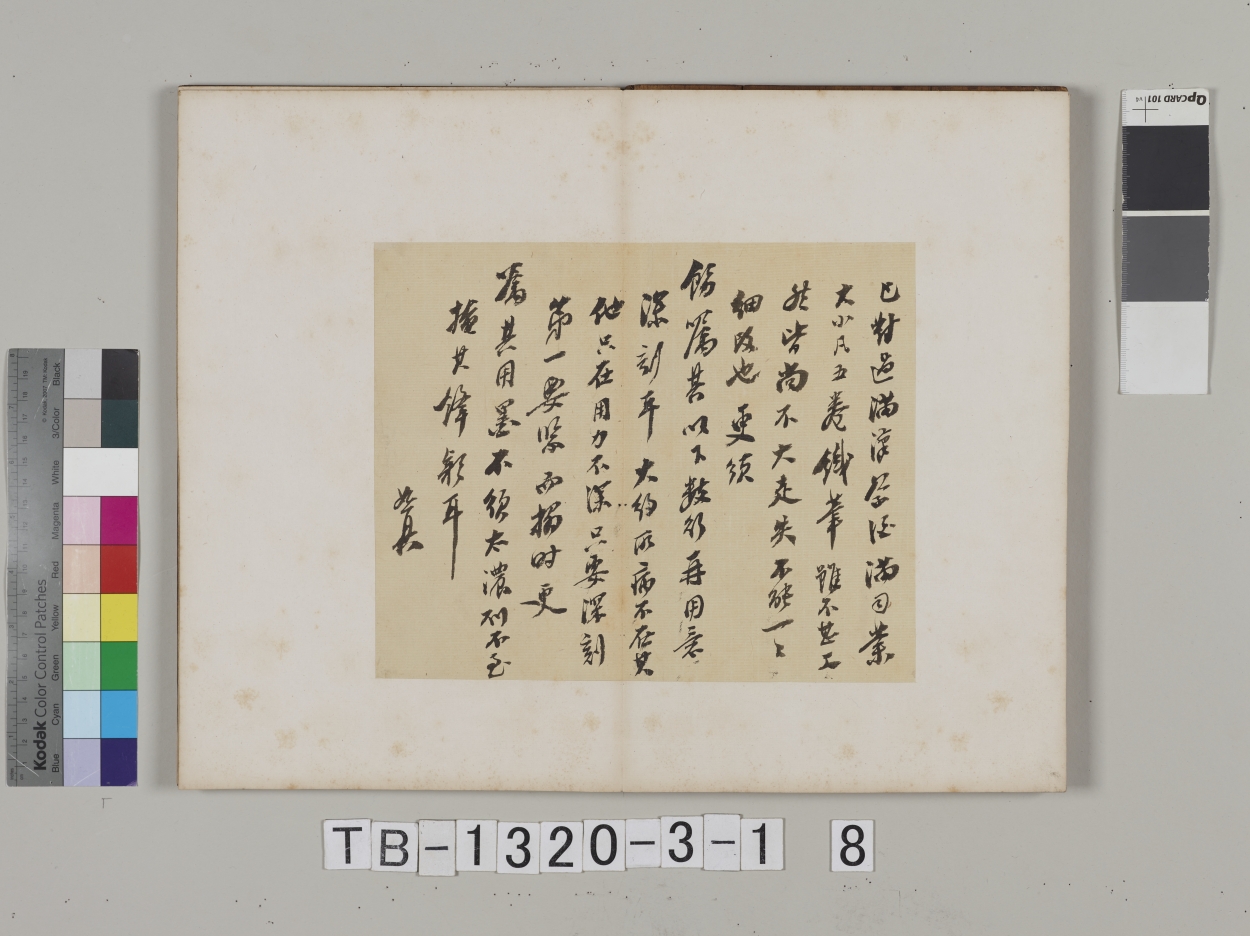 已對過滿漢學 滿司業
大小凡五卷鐵筆雖不甚工
然皆尚不大走失不能一一
細改也更須
飭囑其以下數行再用意
深刻耳大約所病不在其
他只在用力不深只要深刻
第一要緊而搨時更
囑其用墨不須太濃則不至
掩其鋒穎耳
QPCARD 101 v4
Kodak Color Control Patches
Blue Cyan Green Yellow Red Magenta White 3/Color Black
TB-1320-3-1 8